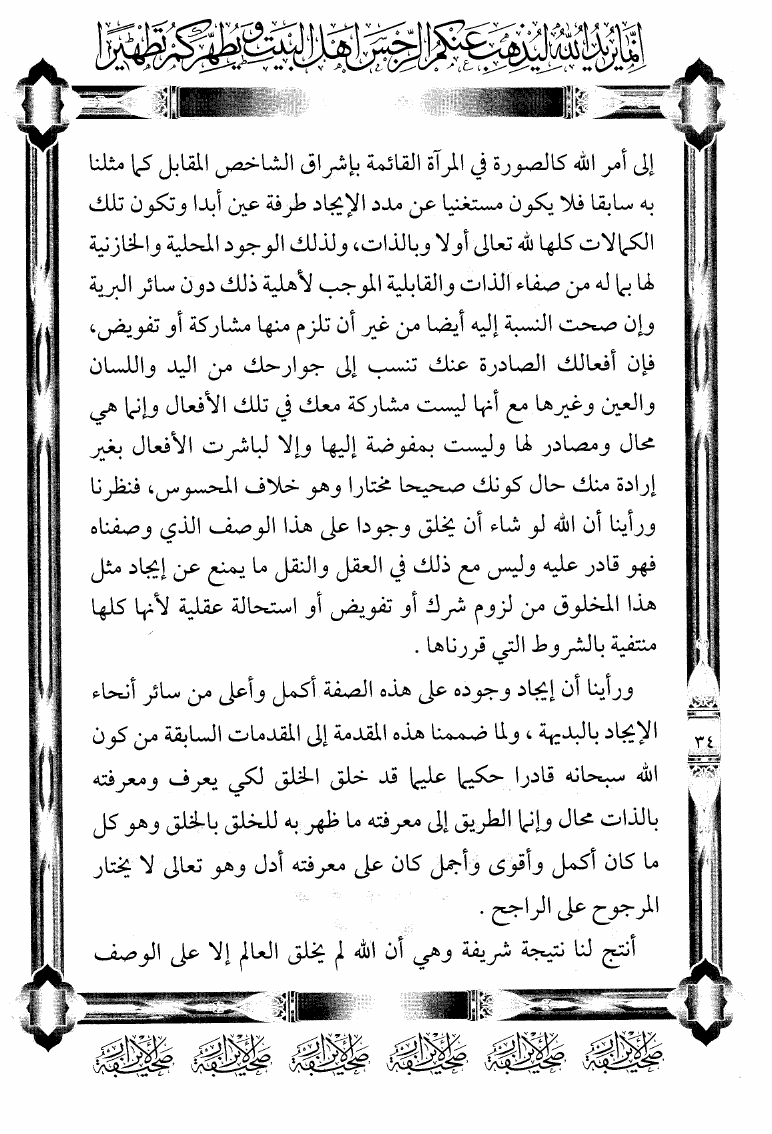 إنما يريد الله ليذهب عنكم الرجس أهل البيت ويطهركم تطهيرا
إلى أمر الله كالصورة في المرآة القائمة بإشراق الشاخص المقابل كما مثلنا
به سابقا فلا يكون مستغنيا عن مدد الإيجاد طرفة عين أبدا وتكون تلك
الكمالات كلها لله تعالى أولا وبالذات، ولذلك الوجود المحلية والخازنية
لها بما له من صفاء الذات والقابلية الموجب لأهلية ذلك دون سائر البرية
وإن صحت النسبة إليه أيضا من غير أن تلزم منها مشاركة أو تفويض،
فإن أفعالك الصادرة عنك تنسب إلى جوارحك من اليد واللسان
والعين وغيرها مع أنها ليست مشاركة معك في تلك الأفعال وإنما هي
محال ومصادر لها وليست بمفوضة إليها وإلا لباشرت الأفعال بغير
إرادة منك حال كونك صحيحا مختارا وهو خلاف المحسوس، فنظرنا
ورأينا أن الله لو شاء أن يخلق وجودا على هذا الوصف الذي وصفناه
فهو قادر عليه وليس مع ذلك في العقل والنقل ما يمنع عن إيجاد مثل
هذا المخلوق من لزوم شرك أو تفويض أو استحالة عقلية لأنها كلها
منتفية بالشروط التي قررناها .
ورأينا أن إيجاد وجوده على هذه الصفة أكمل وأعلى من سائر أنحاء
الإيجاد بالبديهة ، ولما ضممنا هذه المقدمة إلى المقدمات السابقة من كون
٣٤
الله سبحانه قادرا حكيما عليما قد خلق الخلق لكي يعرف ومعرفته
بالذات محال وإنما الطريق إلى معرفته ما ظهر به للخلق بالخلق وهو كل
ما كان أكمل وأقوى وأجمل كان على معرفته أدل وهو تعالى لا يختار
المرجوح على الراجح .
أنتج لنا نتيجة شريفة وهي أن الله لم يخلق العالم إلا على الوصف
صحيفة الأبرار صحيفة الأبرار صحيفة الأبرار صحيفة الأبرار صحيفة الأبرار صحيفة الأبرار